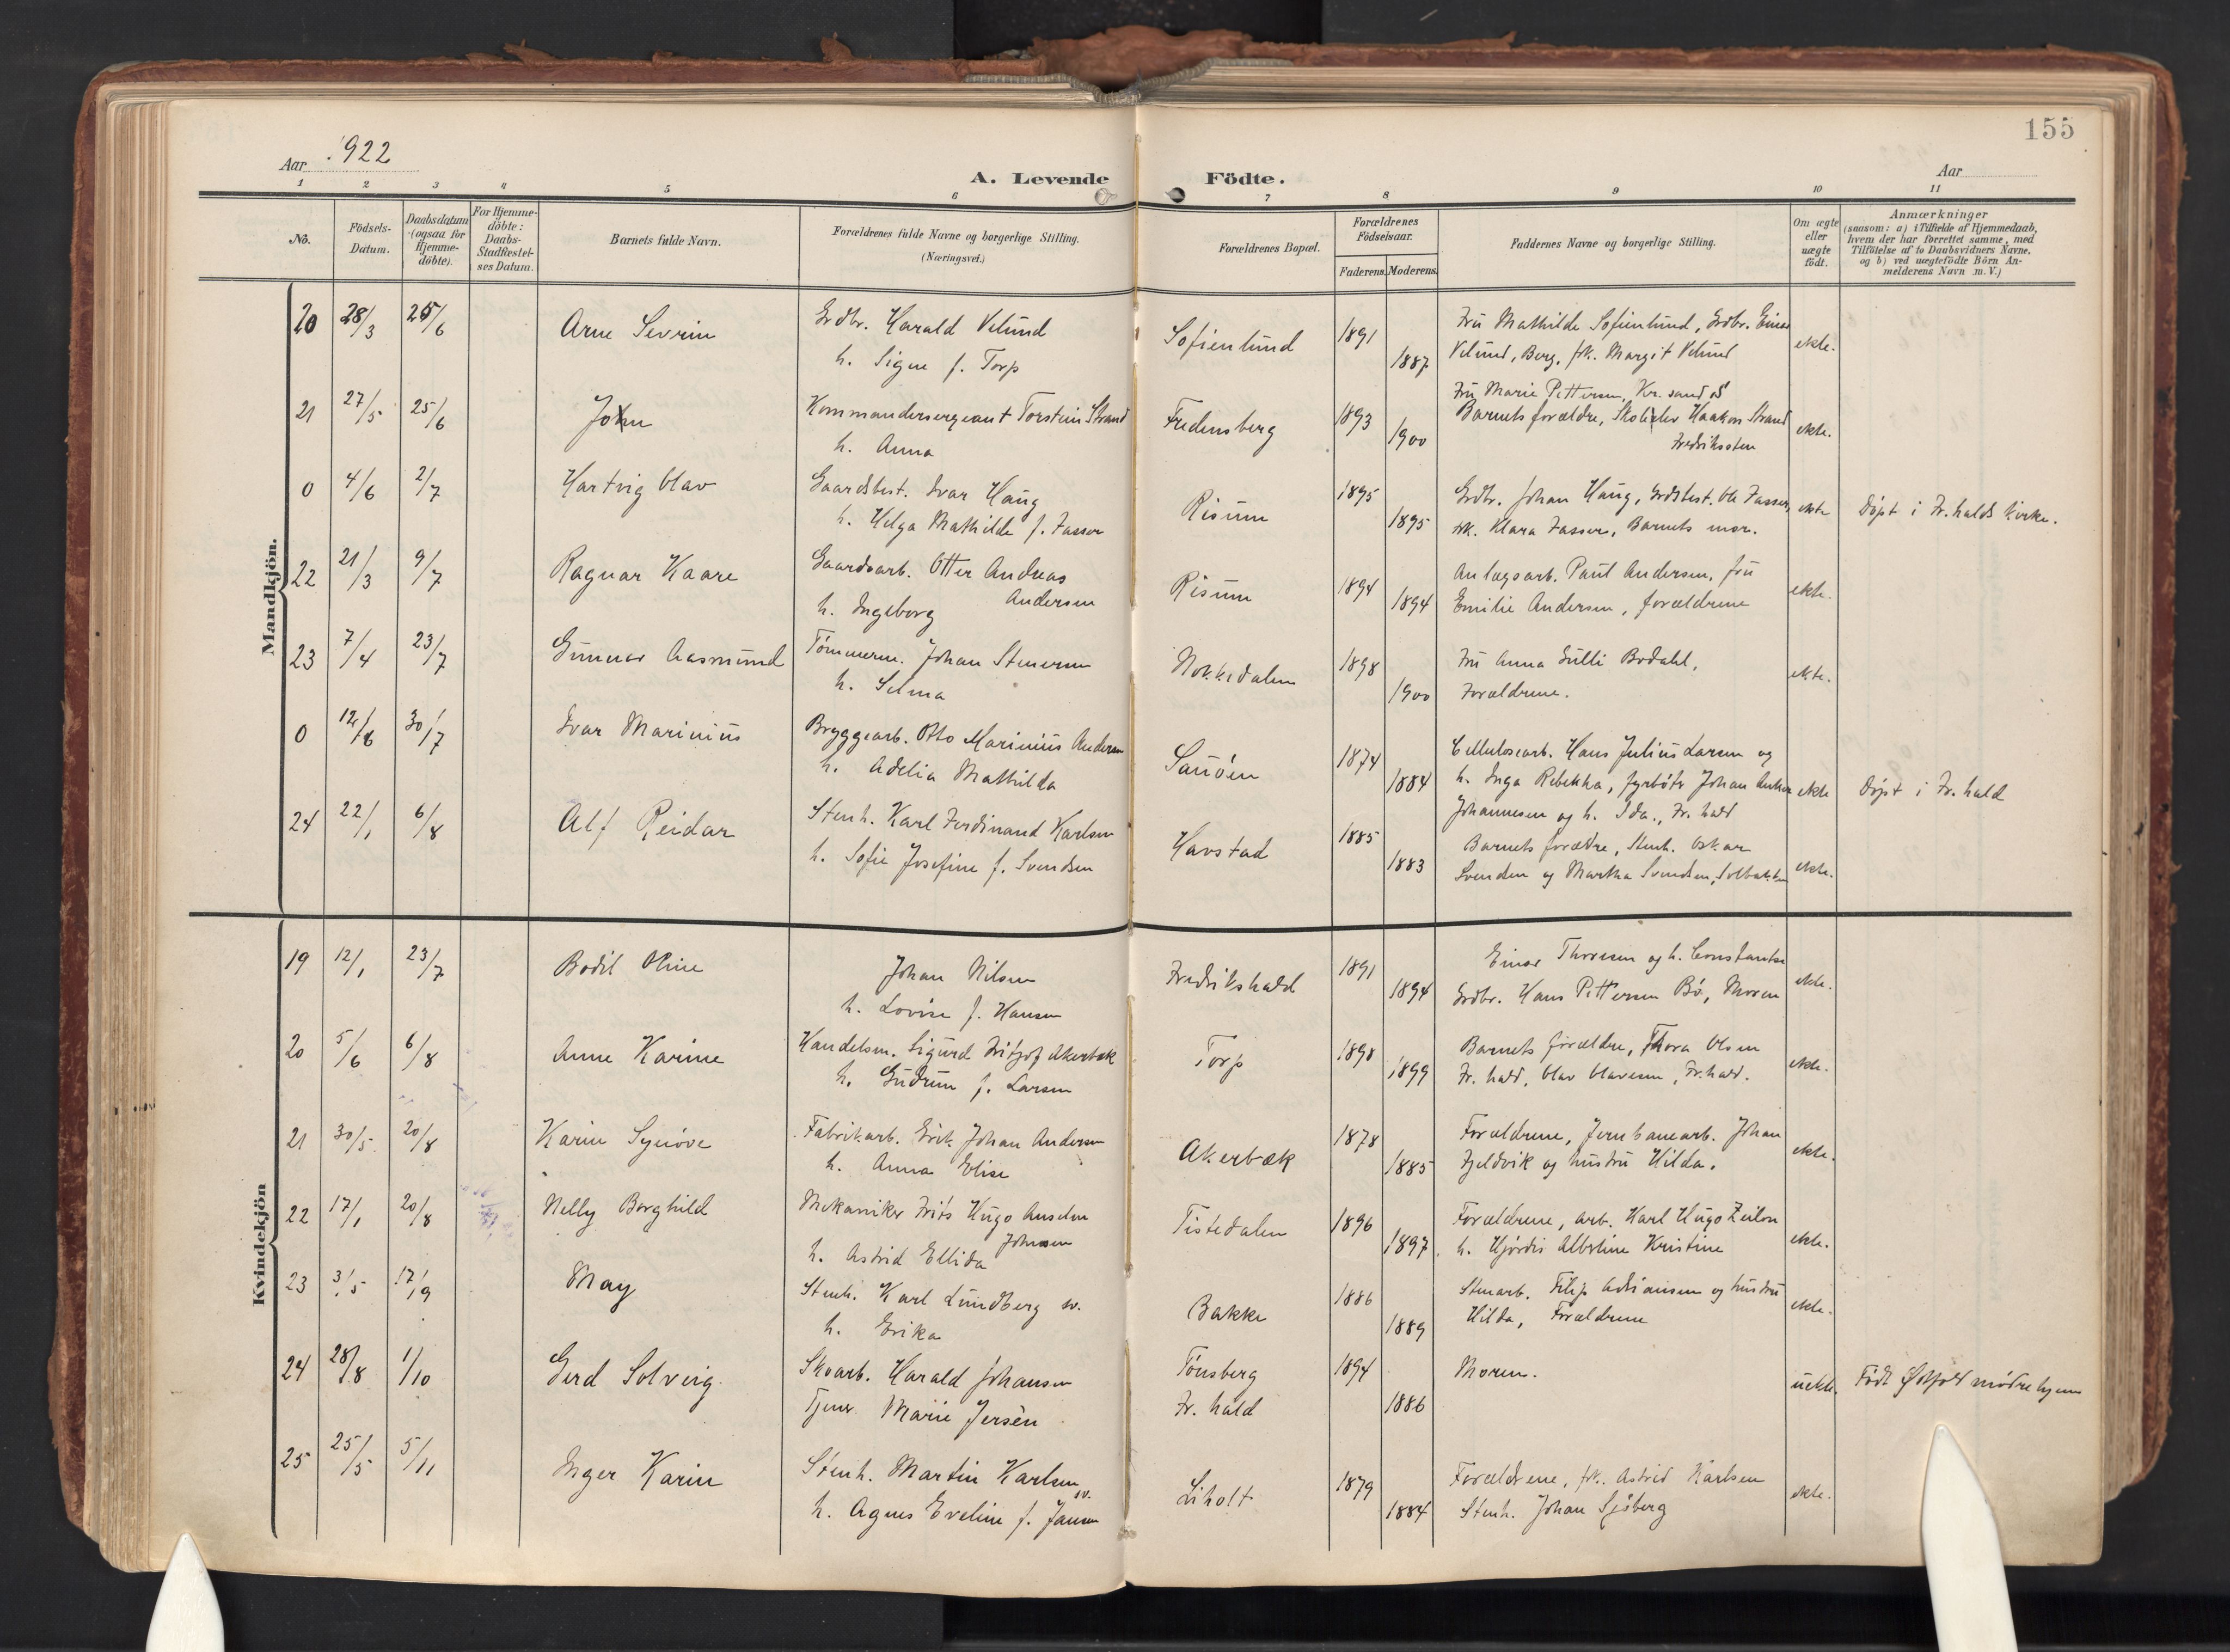 155
Aar 1922
A. Levende Födte.
Aar
1 2 3 4 5 6 7 8 9 10 11
No.
Födsels-
Datum.
Daabsdatum
(ogsaa for
Hjemme-
döbte).
For Hjemme-
döbte:
Daabs-
Stadfæstel-
ses Datum.
Barnets fulde Navn.
Forældrenes fulde Navne og borgerlige Stilling.
(Næringsvei.)
Forældrenes Bopæl.
Forældrenes
Födselsaar.
Faderens. Moderens.
Faddernes Navne og borgerlige Stilling.
Om ægte
eller
uægte
födt.
Anmærkninger
(saasom: a) i Tilfælde af Hjemmedaab,
hvem der har forrettet samme, med
Tilföielse af to Daabsvidners Navne,
og b) ved uægtefödte Börn An-
melderens Navn m. V.)
Mandkjön.
20 28/3 25/6 Arne Sevrin Grdbr. Harald Velund Sofienlund 1891 Fru Mathilde Sofienlund, Grdbr. Einar ekte.
h. Signe f. Torp 1887 Velund, Berg, frk. Margit Velund
Fru Marie Pettersen, Kr. sand S
21 27/5 25/6 John Kommandersergeant Torstein Strand Fredensberg 1893 Barnets forældre, Skoleelev Haakon Strand ekte.
h. Anna 1900 Fredriksten
0 4/6 2/7 Hartvig Olav Gaardsbest. Ivar Haug Risum 1895 Grdbr. Johan Haug, Grdsbest. Ole Fasser, ekte Døpt i Fr.halds kirke.
h. Helga Mathilde f. Fasser 1895 frk. Klara Fasser, Barnets mor.
22 21/3 9/7 Ragnar Kaare Gaardsarb. Otter Andreas Risum 1894 Anlægsarb. Paul Andersen, fru ekte.
Andersen
h. Ingeborg 1894 Emilie Andersen, forældrene
23 7/4 23/7 Gunnar Aasmund Tømmerm. Johan Stenersen Nokkedalen 1898 Fru Anna Gulli Bodahl, ekte.
h. Selma 1900 Forældrene.
0 12/6 30/7 Ivar Marinius Bryggearb. Otto Marinius Andersen Sauøen 1874 Cellulosearb. Hans Julius Larsen og ekte Døpt i Fr.hald
h. Adelia Mathilda 1884 h. Inga Rebekka, fyrbøter Johan Anker
Johannesen og h. Ida., Fr. hald
24 22/1 6/8 Alf Reidar Stenh. Karl Ferdinand Karlsen Havstad 1885 Barnets forældre, Stenh. Oskar ekte.
h. Sofie Josefine f. Svendsen 1883 Svendsen og Martha Svendsen, Solbakken
Kvindekjön
19 12/1 23/7 Bodil Oline Johan Nilsen Fredrikshald 1891 Einar Thoresen og h. Constance ekte.
h. Lovise f. Hansen 1894 Grdbr. Hans Pettersen Bø, Moren
20 5/6 6/8 Anne Karine Handelsm. Sigurd Fritjof Akerbæk Torp 1898 Barnets forældre, Thora Olsen ekte.
h. Gudrun f. Larsen 1899 Fr. hald, Olav Olavesen, Fr.hald.
21 30/5 20/8 Karin Synøve Fabrikarb. Erik Johan Andersen Akerbæk 1878 Forældrene, Jernbanearb. Johan ekte.
h. Anna Elise 1885 Fjeldvik og hustru Hilda.
22 17/1 20/8 Nelly Borghild Mekaniker Frits Hugo Anselm Tistedalen 1896 Forældrene, arb. Karl Hugo Zeilon ekte.
Johnsen
h. Astrid Ellida 1897 h. Hjørdis Albertine Kristine
23 3/5 17/9 May Stenh. Karl Lundberg sv. Bakke 1886 Stenarb. Filip Adriansen og hustru ekte.
h. Erika 1889 Hilda, Forældrene
24 28/8 1/10 Gerd Solveig. Skoarb. Harald Johansen Tønsberg 1894 Moren. uekte. Født Østfold mødrehjem
Tjener Marie Jersèn Fr. hald 1886
25 25/5 5/11 Inger Karin Stenh. Martin Karlsen sv. Liholt 1879 Forældrene, frk. Astrid Karlsen ekte.
h. Agnes Eveline f. Jansen 1884 Stenh. Johan Sjøberg